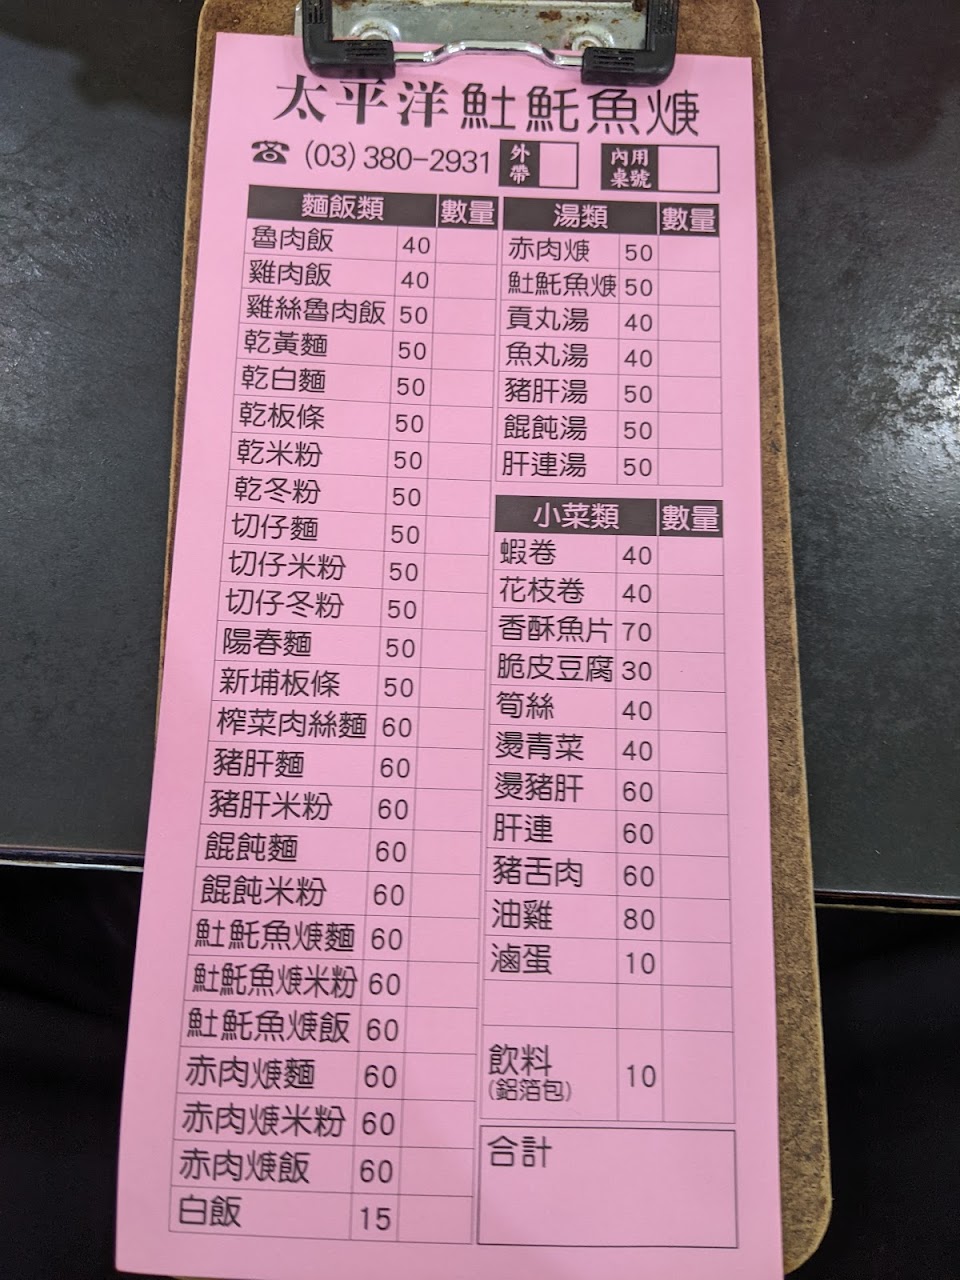 太平洋魠魠魚焿
☎ (03) 380-2931 外帶 內用桌號
麵飯類 數量
魯肉飯 40
雞肉飯 40
雞絲魯肉飯 50
乾黃麵 50
乾白麵 50
乾板條 50
乾米粉 50
乾冬粉 50
切仔麵 50
切仔米粉 50
切仔冬粉 50
陽春麵 50
新埔板條 50
榨菜肉絲麵 60
豬肝麵 60
豬肝米粉 60
餛飩麵 60
餛飩米粉 60
𩵚魠魚焿麵 60
𩵚魠魚焿米粉 60
𩵚魠魚焿飯 60
赤肉焿麵 60
赤肉焿米粉 60
赤肉焿飯 60
白飯 15
湯類 數量
赤肉焿 50
𩵚魠魚焿 50
貢丸湯 40
魚丸湯 40
豬肝湯 50
餛飩湯 50
肝連湯 50
小菜類 數量
蝦卷 40
花枝卷 40
香酥魚片 70
脆皮豆腐 30
筍絲 40
燙青菜 40
燙豬肝 60
肝連 60
豬舌肉 60
油雞 80
滷蛋 10
飲料 10
(鋁箔包)
合計